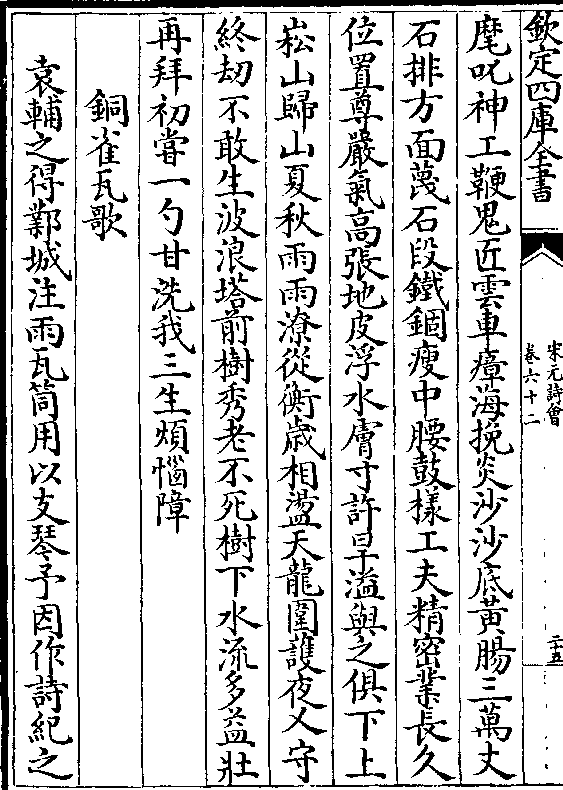 欽定四庫全書
宋元詩會
卷六十二
二十五
麾叱神工鞭鬼匠雲車瘴海挽炎沙沙底黃腸三萬丈
石排方面蔑石段鐵錮瘦中腰鼓樣工夫精密業長久
位置尊嚴氣高張地皮浮水膚寸許旱溢與之俱下上
崧山歸山夏秋雨雨潦從衡歲相盪天龍圍護夜乂守
終劫不敢生波浪塔前樹秀老不死樹下水流多益壯
再拜初嘗一勺甘洗我三生煩惱障
銅雀瓦歌
袁輔之得鄴城注雨瓦筒用以支琴予因作詩紀之